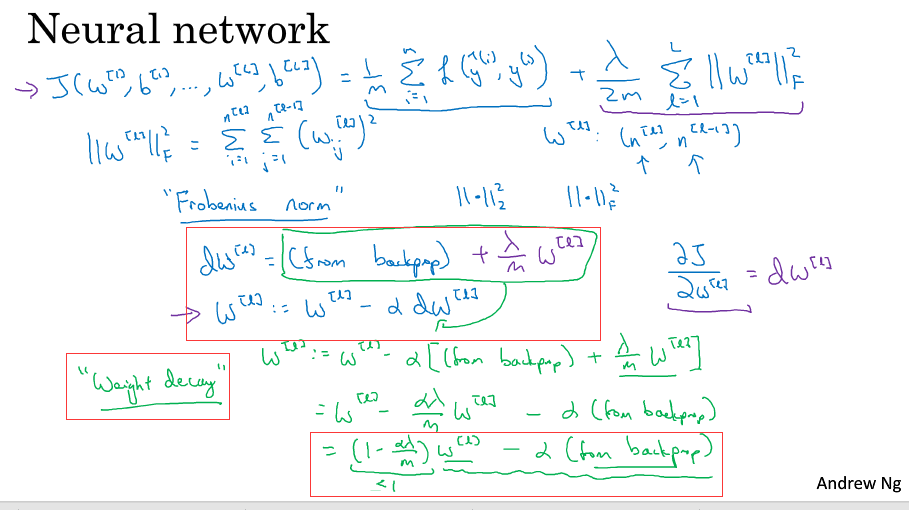 Neural network
→ J(w^[1], b^[1], ..., w^[L], b^[L]) = 1/m Σ_{i=1}^{m} L(ŷ^(i), y^(i)) + λ/2m Σ_{l=1}^{L} ||w^[l]||_F^2
||w^[l]||_F^2 = Σ_{i=1}^{n^[l]} Σ_{j=1}^{n^[l-1]} (w_ij^[l])^2 w^[l]: (n^[l], n^[l-1])
"Frobenius norm" ||·||_2^2 ||·||_F^2
dw^[l] = (from backprop) + λ/m w^[l]
∂J/∂w^[l] = dw^[l]
→ w^[l] := w^[l] - α dw^[l]
w^[l] := w^[l] - α[(from backprop) + λ/m w^[l]]
"Weight decay"
= w^[l] - αλ/m w^[l] - α (from backprop)
= (1 - αλ/m) w^[l] - α (from backprop)
<1
Andrew Ng